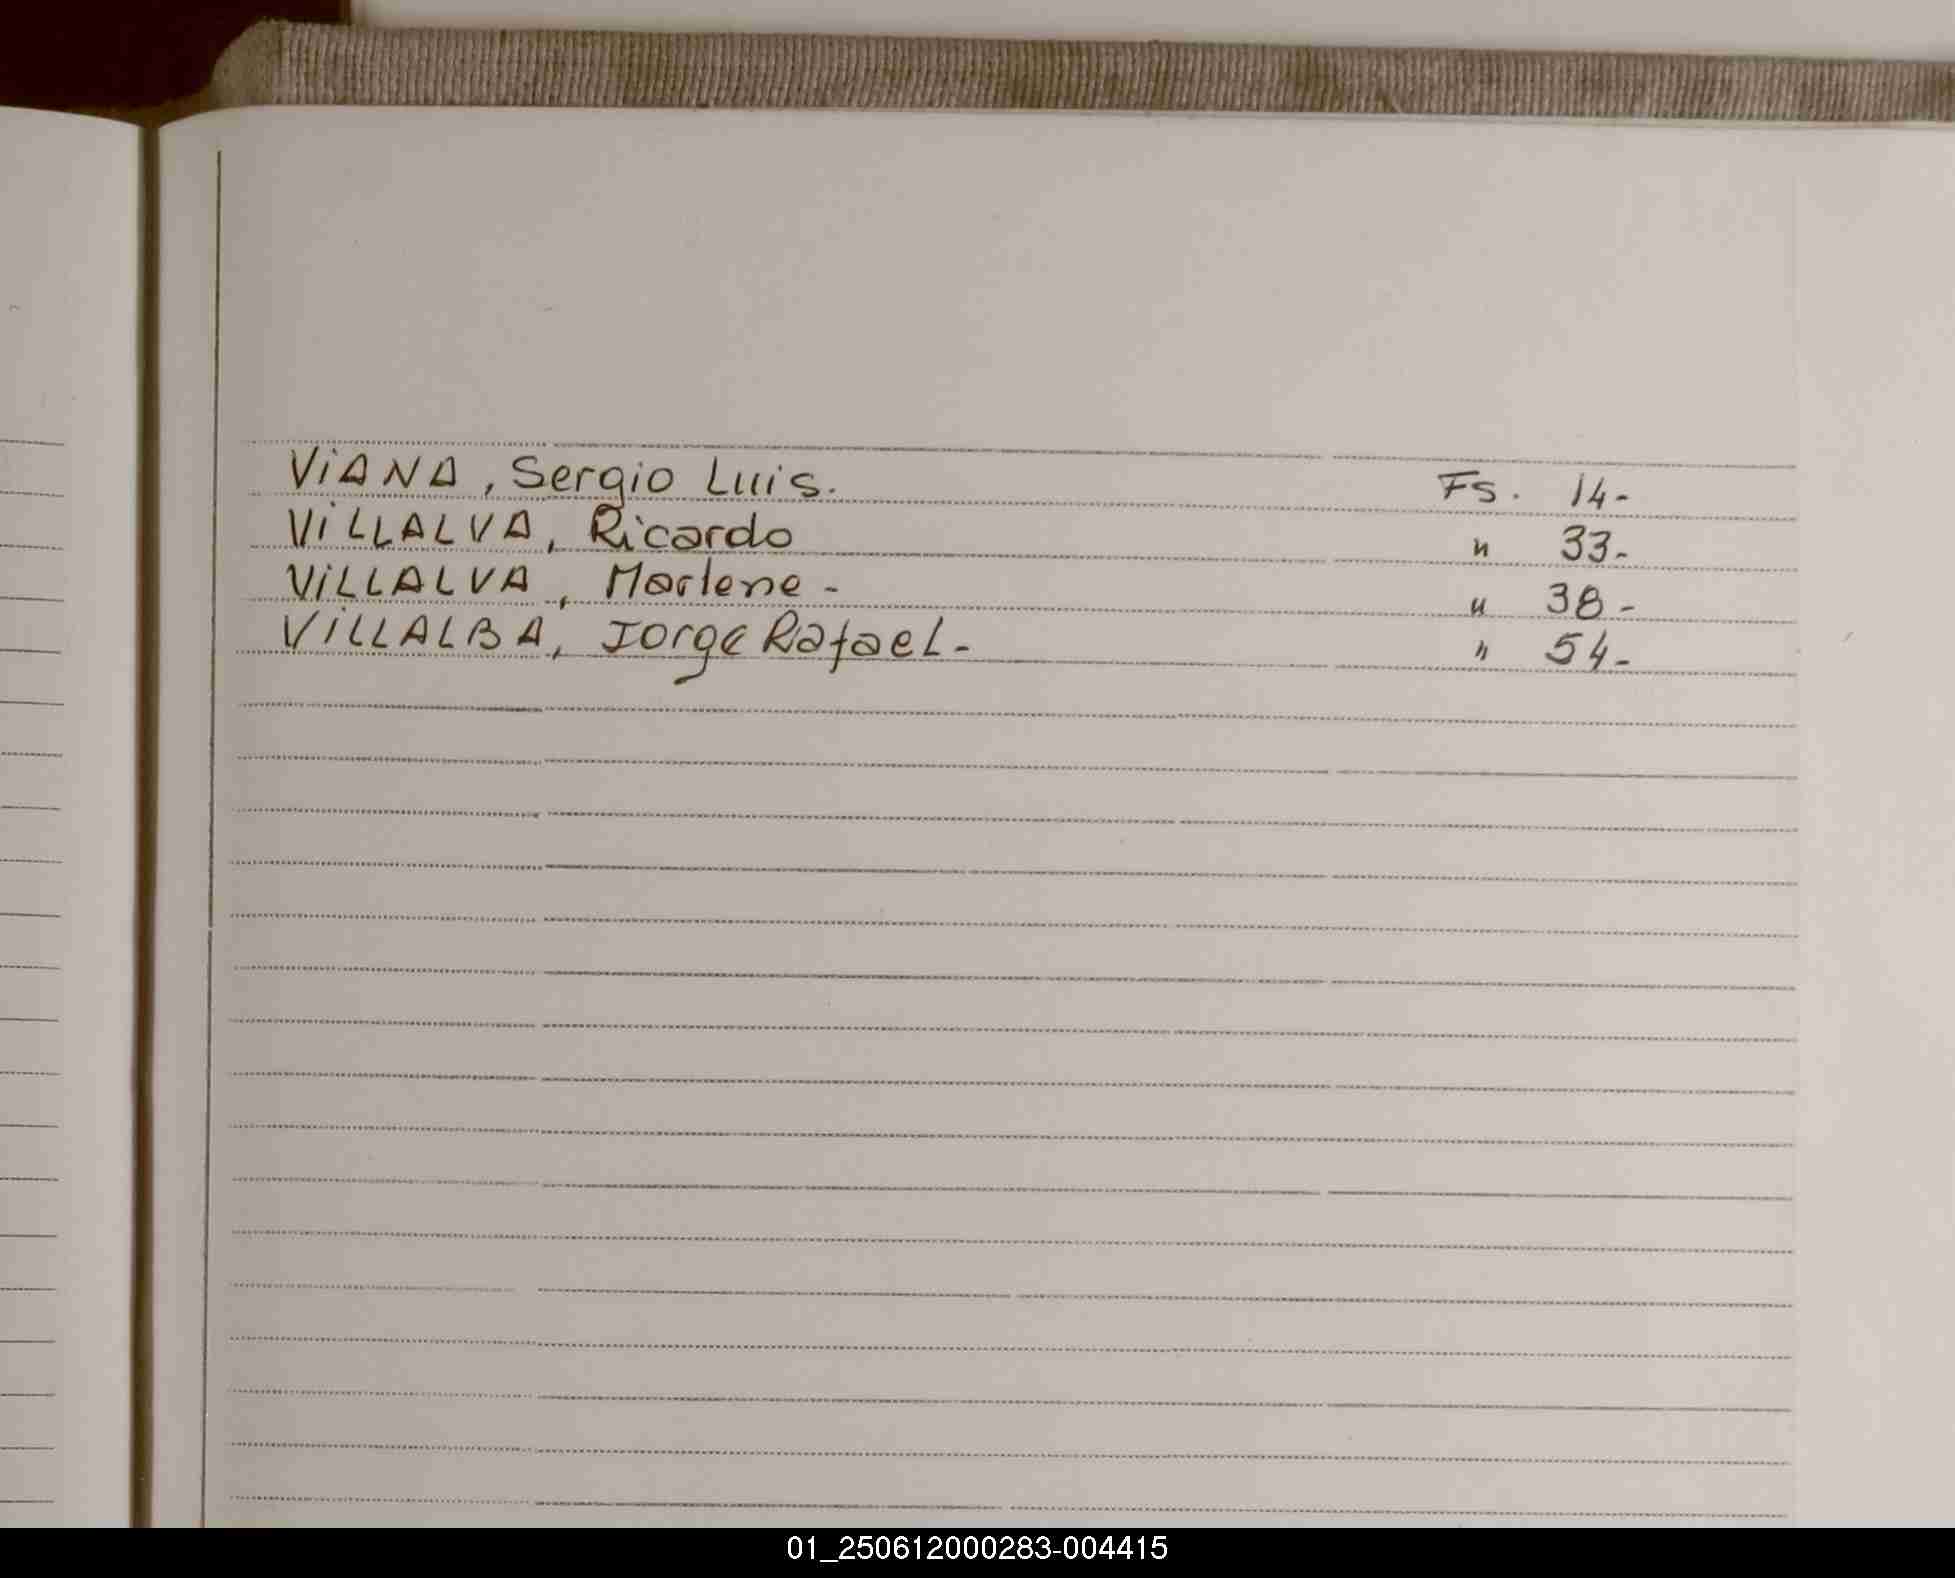 VIANA, Sergio Luis. Fs. 14-
VILLALVA, Ricardo " 33-
VILLALVA, Marlene - " 38-
VILLALBA, Jorge Rafael- " 54-
01_250612000283-004415